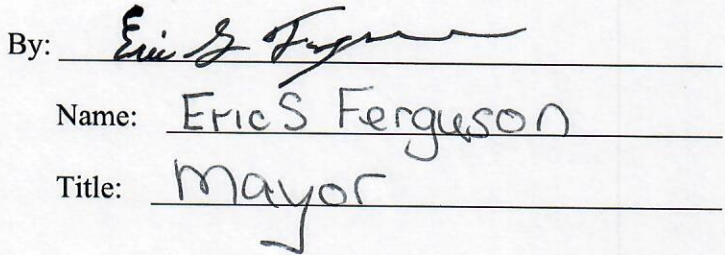 By: Eric S Ferguson
Name: Eric S Ferguson
Title: Mayor